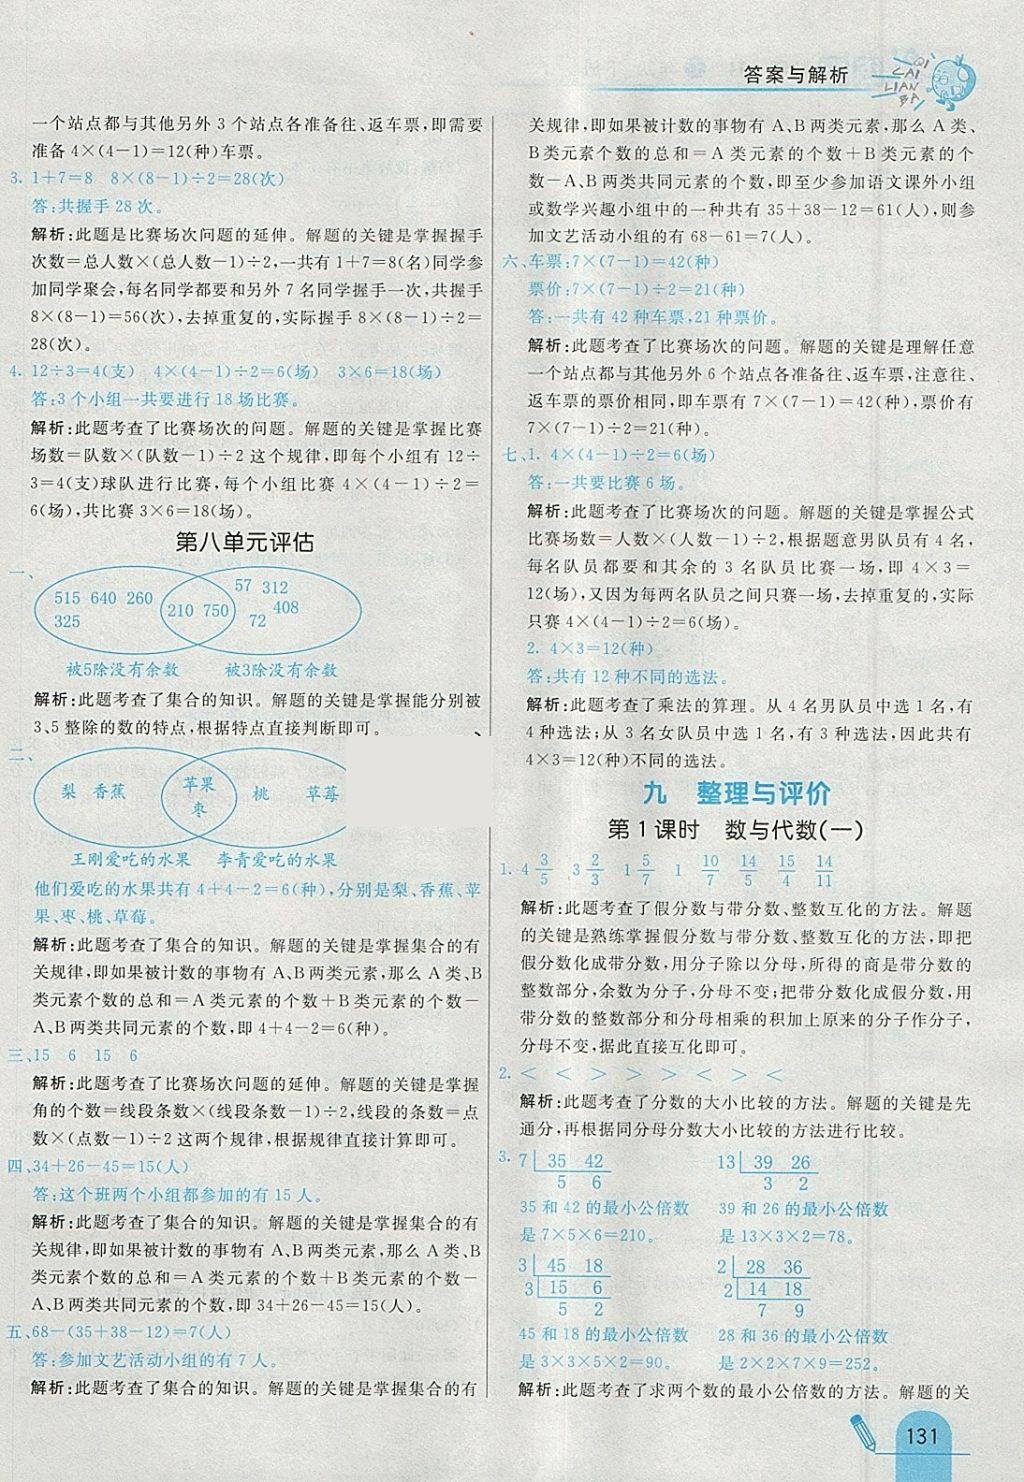 答案与解析
QI
CAI
LIAN
BA
一个站点都与其他另外 3 个站点各准备往、返车票,即需要
准备 4×(4-1)=12(种)车票。
3. 1+7=8 8×(8-1)÷2=28(次)
答:共握手 28 次。
解析:此题是比赛场次问题的延伸。解题的关键是掌握握手
次数=总人数×(总人数-1)÷2,一共有 1+7=8(名)同学参
加同学聚会,每名同学都要和另外 7 名同学握手一次,共握手
8×(8-1)=56(次),去掉重复的,实际握手 8×(8-1)÷2=
28(次)。
4. 12÷3=4(支) 4×(4-1)÷2=6(场) 3×6=18(场)
答:3 个小组一共要进行 18 场比赛。
解析:此题考查了比赛场次的问题。解题的关键是掌握比赛
场数=队数×(队数-1)÷2 这个规律,即每个小组有 12÷
3=4(支)球队进行比赛,每个小组比赛 4×(4-1)÷2=
6(场),共比赛 3×6=18(场)。
第八单元评估
一、
515 640 260
325
210 750
57 312
408
72
被5除没有余数 被3除没有余数
解析:此题考查了集合的知识。解题的关键是掌握能分别被
3、5 整除的数的特点,根据特点直接判断即可。
二、
梨 香蕉
苹果
枣
桃 草莓
王刚爱吃的水果 李青爱吃的水果
他们爱吃的水果共有 4+4-2=6(种),分别是梨、香蕉、苹
果、枣、桃、草莓。
解析:此题考查了集合的知识。解题的关键是掌握集合的有
关规律,即如果被计数的事物有 A、B 两类元素,那么 A 类、B
类元素个数的总和=A 类元素的个数+B 类元素的个数-
A、B 两类共同元素的个数,即 4+4-2=6(种)。
三、15 6 15 6
解析:此题考查了比赛场次问题的延伸。解题的关键是掌握
角的个数=线段条数×(线段条数-1)÷2,线段的条数=点
数×(点数-1)÷2 这两个规律,根据规律直接计算即可。
四、34+26-45=15(人)
答:这个班两个小组都参加的有 15 人。
解析:此题考查了集合的知识。解题的关键是掌握集合的有
关规律,即如果被计数的事物有 A、B 两类元素,那么 A 类、B
类元素个数的总和=A 类元素的个数+B 类元素的个数-
A、B 两类共同元素的个数,即 34+26-45=15(人)。
五、68-(35+38-12)=7(人)
答:参加文艺活动小组的有 7 人。
解析:此题考查了集合的知识。解题的关键是掌握集合的有
关规律,即如果被计数的事物有 A、B 两类元素,那么 A 类、
B 类元素个数的总和=A 类元素的个数+B 类元素的个
数-A、B 两类共同元素的个数,即至少参加语文课外小组
或数学兴趣小组中的一种共有 35+38-12=61(人),则参
加文艺活动小组的有 68-61=7(人)。
六、车票:7×(7-1)=42(种)
票价:7×(7-1)÷2=21(种)
答:一共有 42 种车票,21 种票价。
解析:此题考查了比赛场次的问题。解题的关键是理解任意
一个站点都与其他另外 6 个站点各准备往、返车票,注意往、
返车票的票价相同,即车票有 7×(7-1)=42(种),票价有
7×(7-1)÷2=21(种)。
七、1. 4×(4-1)÷2=6(场)
答:一共要比赛 6 场。
解析:此题考查了比赛场次的问题。解题的关键是掌握公式
比赛场数=人数×(人数-1)÷2,根据题意男队员有 4 名,
每名队员都要和其余的 3 名队员比赛一场,即 4×3=
12(场),又因为每两名队员之间只赛一场,去掉重复的,实际
只赛 4×(4-1)÷2=6(场)。
2. 4×3=12(种)
答:共有 12 种不同的选法。
解析:此题考查了乘法的算理。从 4 名男队员中选 1 名,有
4 种选法;从 3 名女队员中选 1 名,有 3 种选法,因此共有
4×3=12(种)不同的选法。
九 整理与评价
第 1 课时 数与代数(一)
1. 4 3/5 3 2/3 1 5/7 1 10/7 14/5 15/4 14/11
解析:此题考查了假分数与带分数、整数互化的方法。解题
的关键是熟练掌握假分数与带分数、整数互化的方法,即把
假分数化成带分数,用分子除以分母,所得的商是带分数的
整数部分,余数为分子,分母不变;把带分数化成假分数,用
带分数的整数部分和分母相乘的积加上原来的分子作分子,
分母不变,据此直接互化即可。
2. < < > > > < > <
解析:此题考查了分数的大小比较的方法。解题的关键是先
通分,再根据同分母分数大小比较的方法进行比较。
3. 7 35 42 13 39 26
5 6 3 2
35 和 42 的最小公倍数 39 和 26 的最小公倍数
是 7×5×6=210。 是 13×3×2=78。
3 45 18 2 28 36
3 15 6 2 14 18
5 2 7 9
45 和 18 的最小公倍数 28 和 36 的最小公倍数
是 3×3×5×2=90。 是 2×2×7×9=252。
解析:此题考查了求两个数的最小公倍数的方法。解题的关
131